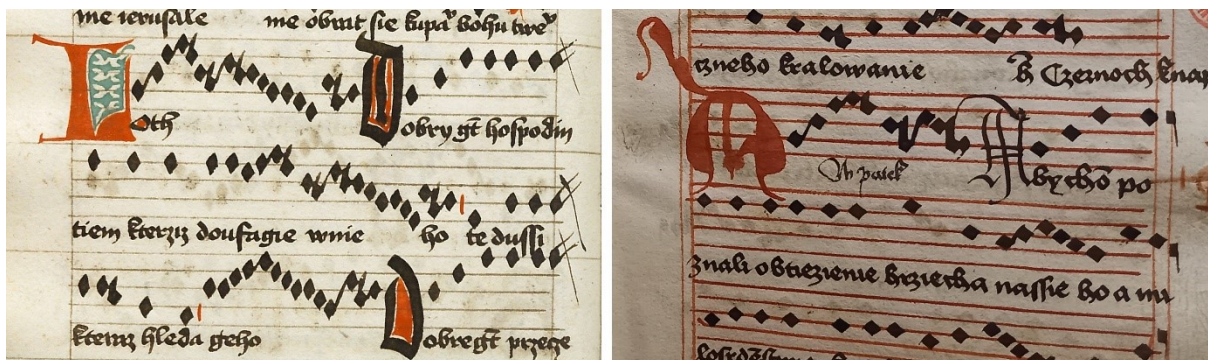 me ierusale me obrat sie kupa bohu twe
Joth Dobry gt hospodin
tiem kterziz doufagie wnie ho te dussi
kterziz hleda geho Dobre gt przeze
czneho kralowanie Czernoch knap
W patek Abycho po
znali obtiezienie hrziecha nassie ho a mi